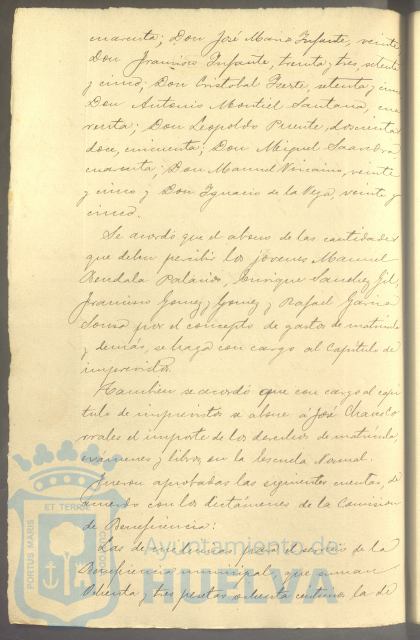 cuarenta; Don José Maria Infante, veinte
Don Francisco Infante, treinta y tres, setenta
y cinco; Don Cristobal Fuerte, setenta y cinco
Don Antonio Montiel Santana, cua
renta; Don Leopoldo Puente, doscientas
doce, cincuenta; Don Miguel Saavedra
cuarenta; Don Manuel Vizcaino, veinte
y cinco y Don Ignacio de la Vega, veinte y
cinco.
Se acordó que el abono de las cantidades
que deben percibir los jóvenes Manuel
Rendala Palacios, Enrique Sanchez Gil,
Francisco Gomez y Gomez y Rafael Garcia
Sousa por el concepto de gastos de matricula
y demás, se haga con cargo al Capitulo de
imprevistos.
Tambien se acordó que con cargo al capi
tulo de imprevistos se abone á José Chaves Co
rrales el importe de los derechos de matricula,
exámenes y libros en la Escuela Normal.
Fueron aprobadas las siguientes cuentas, de
acuerdo con los dictámenes de la Comision
de Beneficencia:
Las de para el servicio de la
Beneficencia municipal, que suman
ochenta y tres pesetas ochenta centimos, la de
PORTUS MARIS
ET TERRE
CUSTODIA
Ayuntamiento de
HUELVA